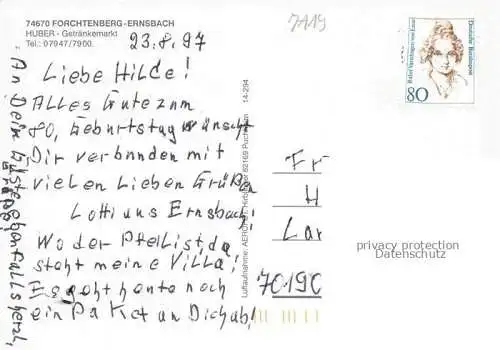 74670 FORCHTENBERG-ERNSBACH
HUBER - Getränkemarkt
Tel.: 07947/7900.
23.8.97
7419
Liebe Hilde!
Alles Gute zum
80, Geburtstag wünscht
Dir verbunden mit
vielen Lieben Grüßen
Lotti aus Ernsbach!
Wo der Pfeil ist, da
steht meine Villa!
Es geht heute noch
ein Paket an Dich ab!
An Deine Gäste ebenfalls herzl.
Grüße!
Luftaufnahme: AERO 82169 Puchheim 14-294
Deutsche Bundespost
Rahel Varnhagen von Ense
80
Fr
H
Lar
70190
privacy protection
Datenschutz